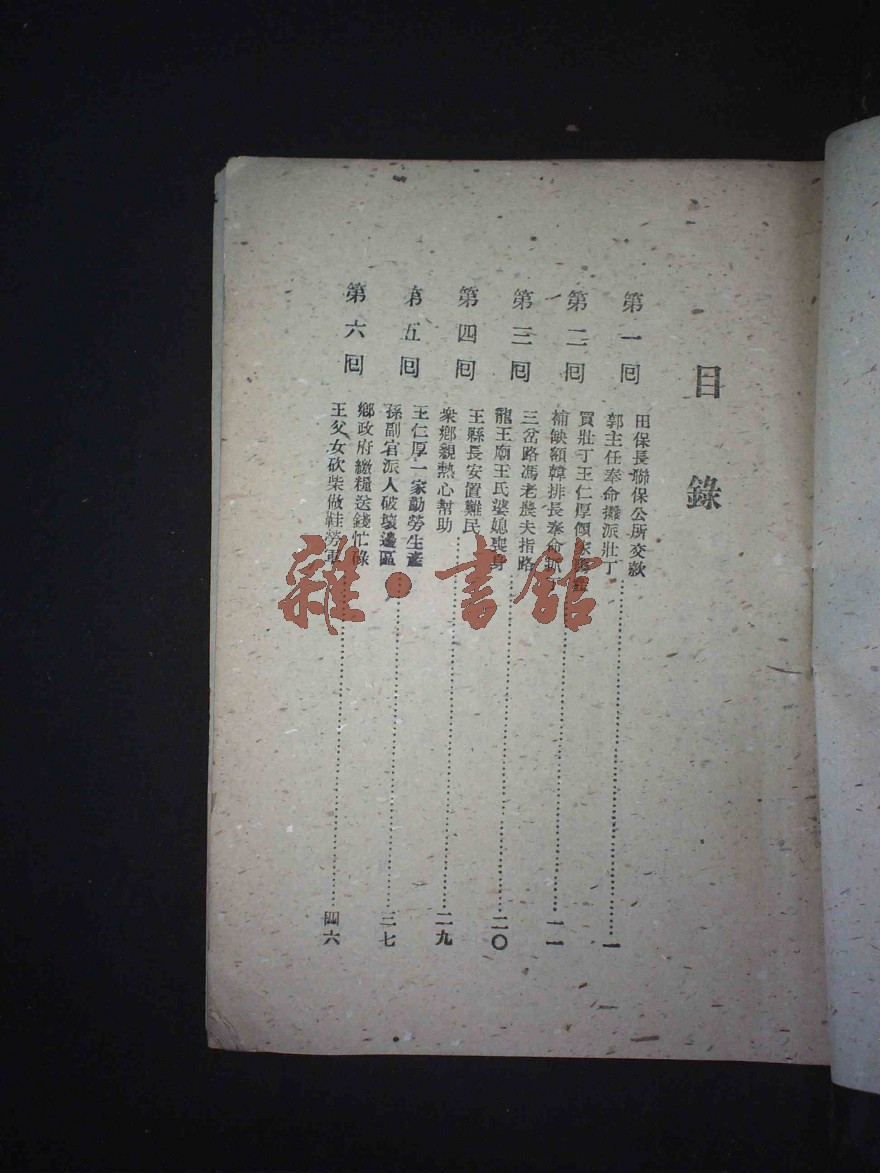 目錄
第一回
田保長聯保公所交款
郭主任奉命攤派壯丁
一
第二回
買壯丁王仁厚傾家
補缺額韓排長奉命抓
一一
第三回
三岔路馮老農夫指路
龍王廟王氏婆媳喪身
二〇
第四回
王縣長安置難民
衆鄉親熱心幫助
二九
第五回
王仁厚一家勤勞生產
孫副官派人破壞邊區
三七
第六回
鄉政府繳糧送錢忙碌
王父女砍柴做鞋勞軍
四六
雜·書館